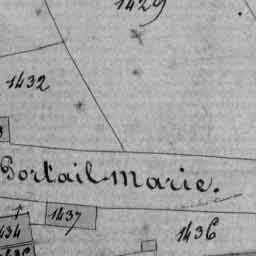 1429
1432
Portail-Marie.
1437
1436